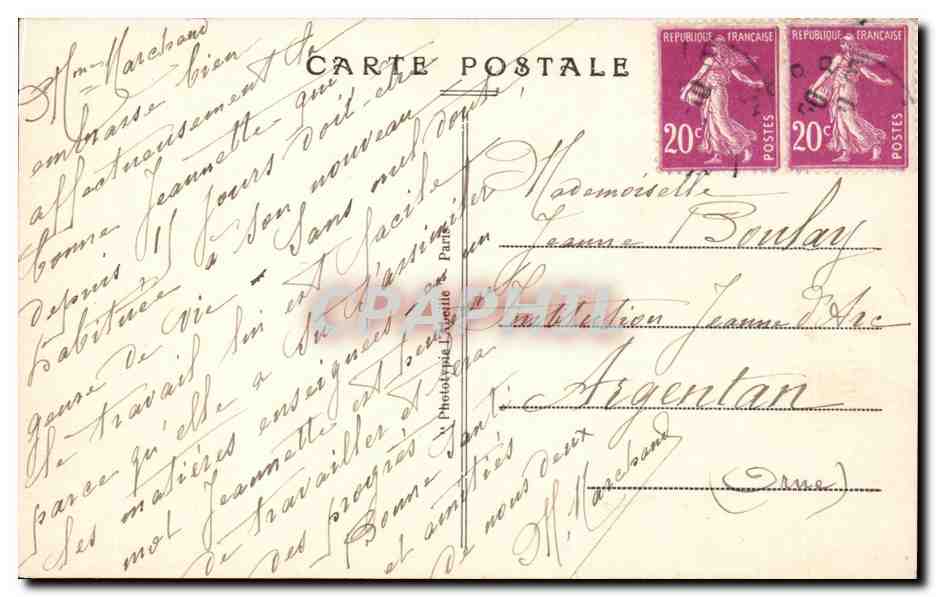 CARTE POSTALE
REPUBLIQUE FRANÇAISE
20c
POSTES
REPUBLIQUE FRANÇAISE
20c
POSTES
Mme Marchand
embrasse bien
affectueusement sa
bonne Jeannette qui
depuis 15 jours doit être
habituée à son nouveau
genre de vie - Sans nul doute
le travail lui est facile
parce qu'elle a su s'assimiler
les matières enseignées en un
mot Jeannette est heureuse
de travailler et fera
des progrès
Bonne Santé
et amitiés
de nous deux
M. Marchand
Phototypie l'Abeille Paris
Mademoiselle
Jeanne Boulay
Institution Jeanne d'Arc
Argentan
(Orne)
CPAPHIL